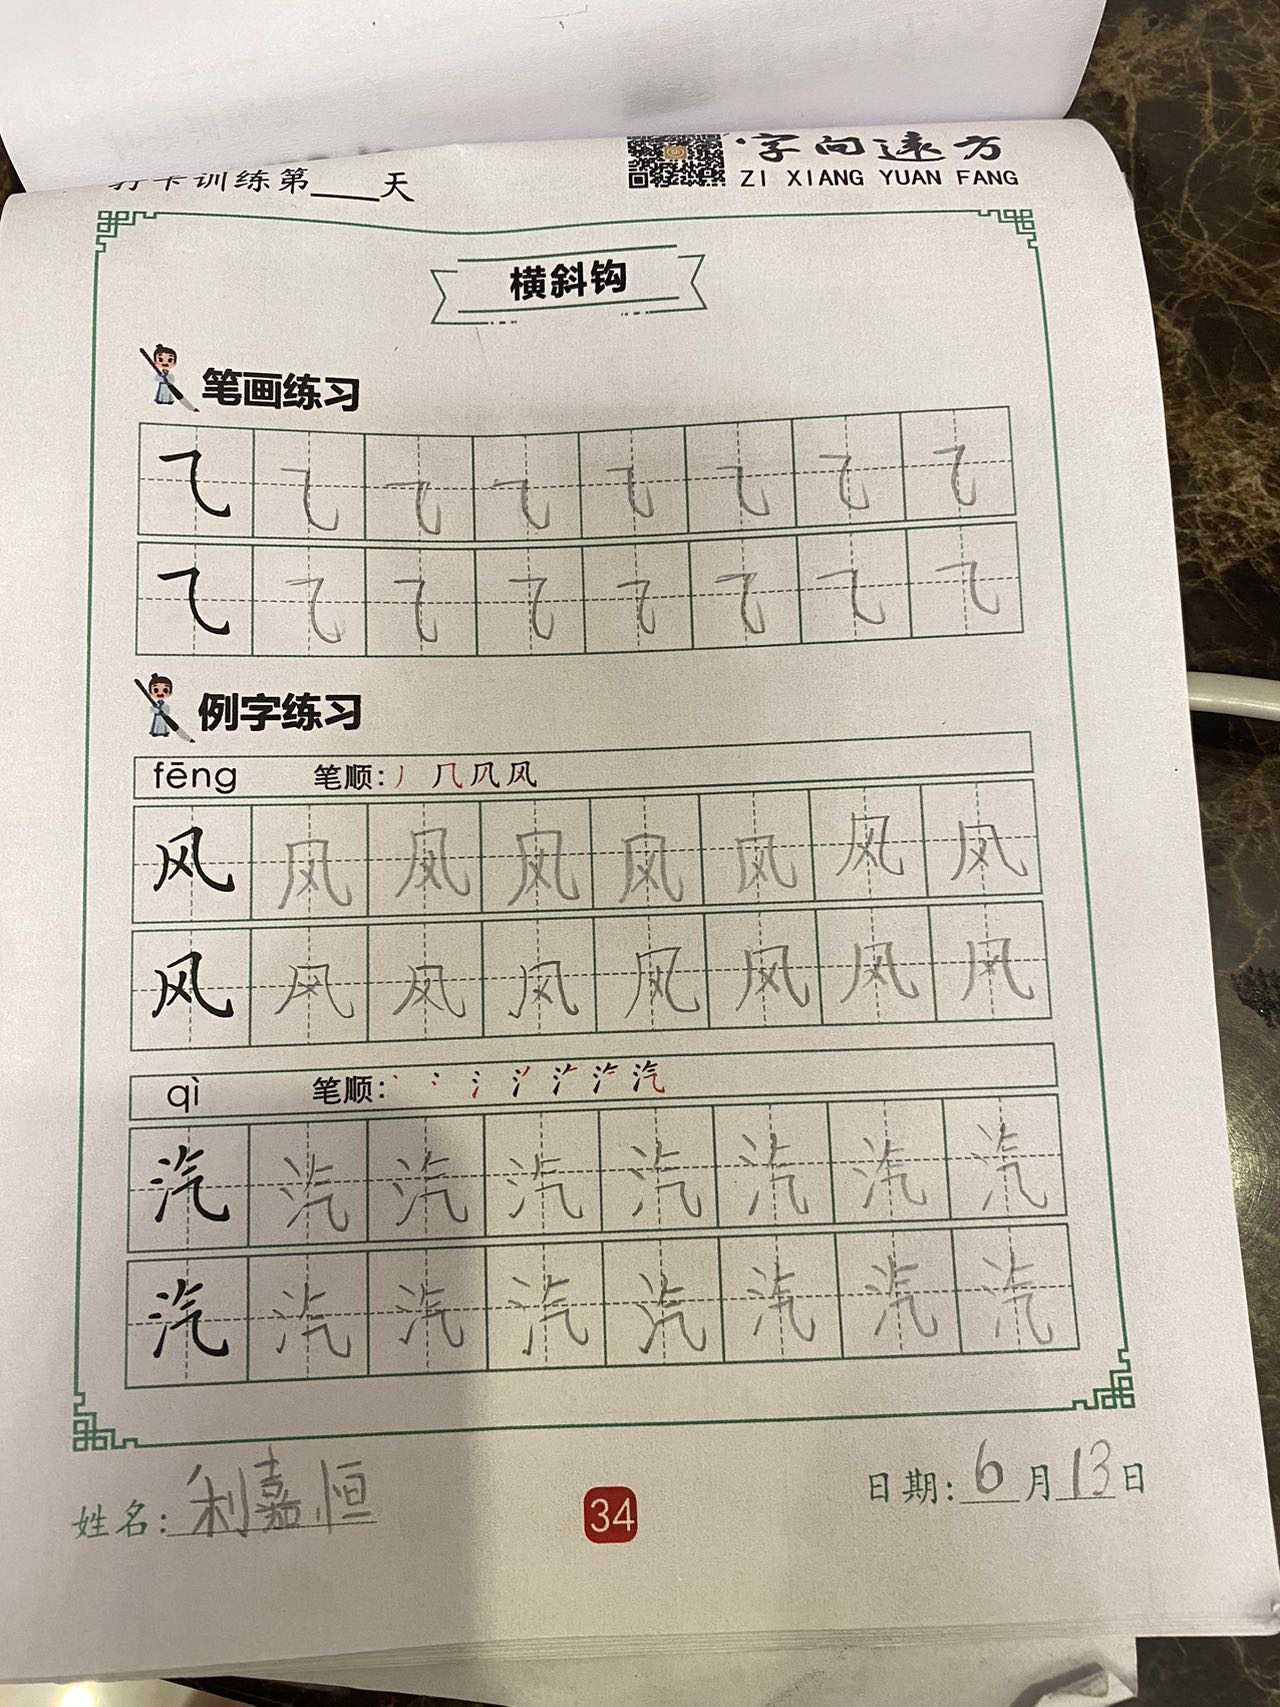 打卡训练第___天
字向远方
ZI XIANG YUAN FANG
横斜钩
笔画练习
乁 乁 乁 乁 乁 乁 乁 乁
乁 乁 乁 乁 乁 乁 乁 乁
例字练习
fēng 笔顺: 丿 几 凡 风
风 风 风 风 风 风 风 风
风 风 风 风 风 风 风 风
qì 笔顺:
汽 汽 汽 汽 汽 汽 汽 汽
汽 汽 汽 汽 汽 汽 汽 汽
姓名: 利嘉恒
34
日期: 6 月 13 日